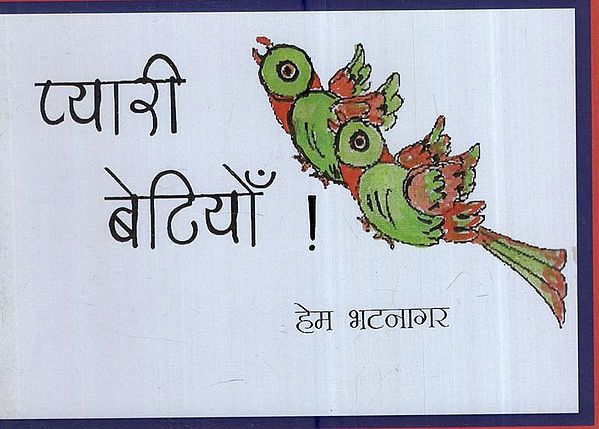 प्यारी
बेटियोँ !
हेम भटनागर